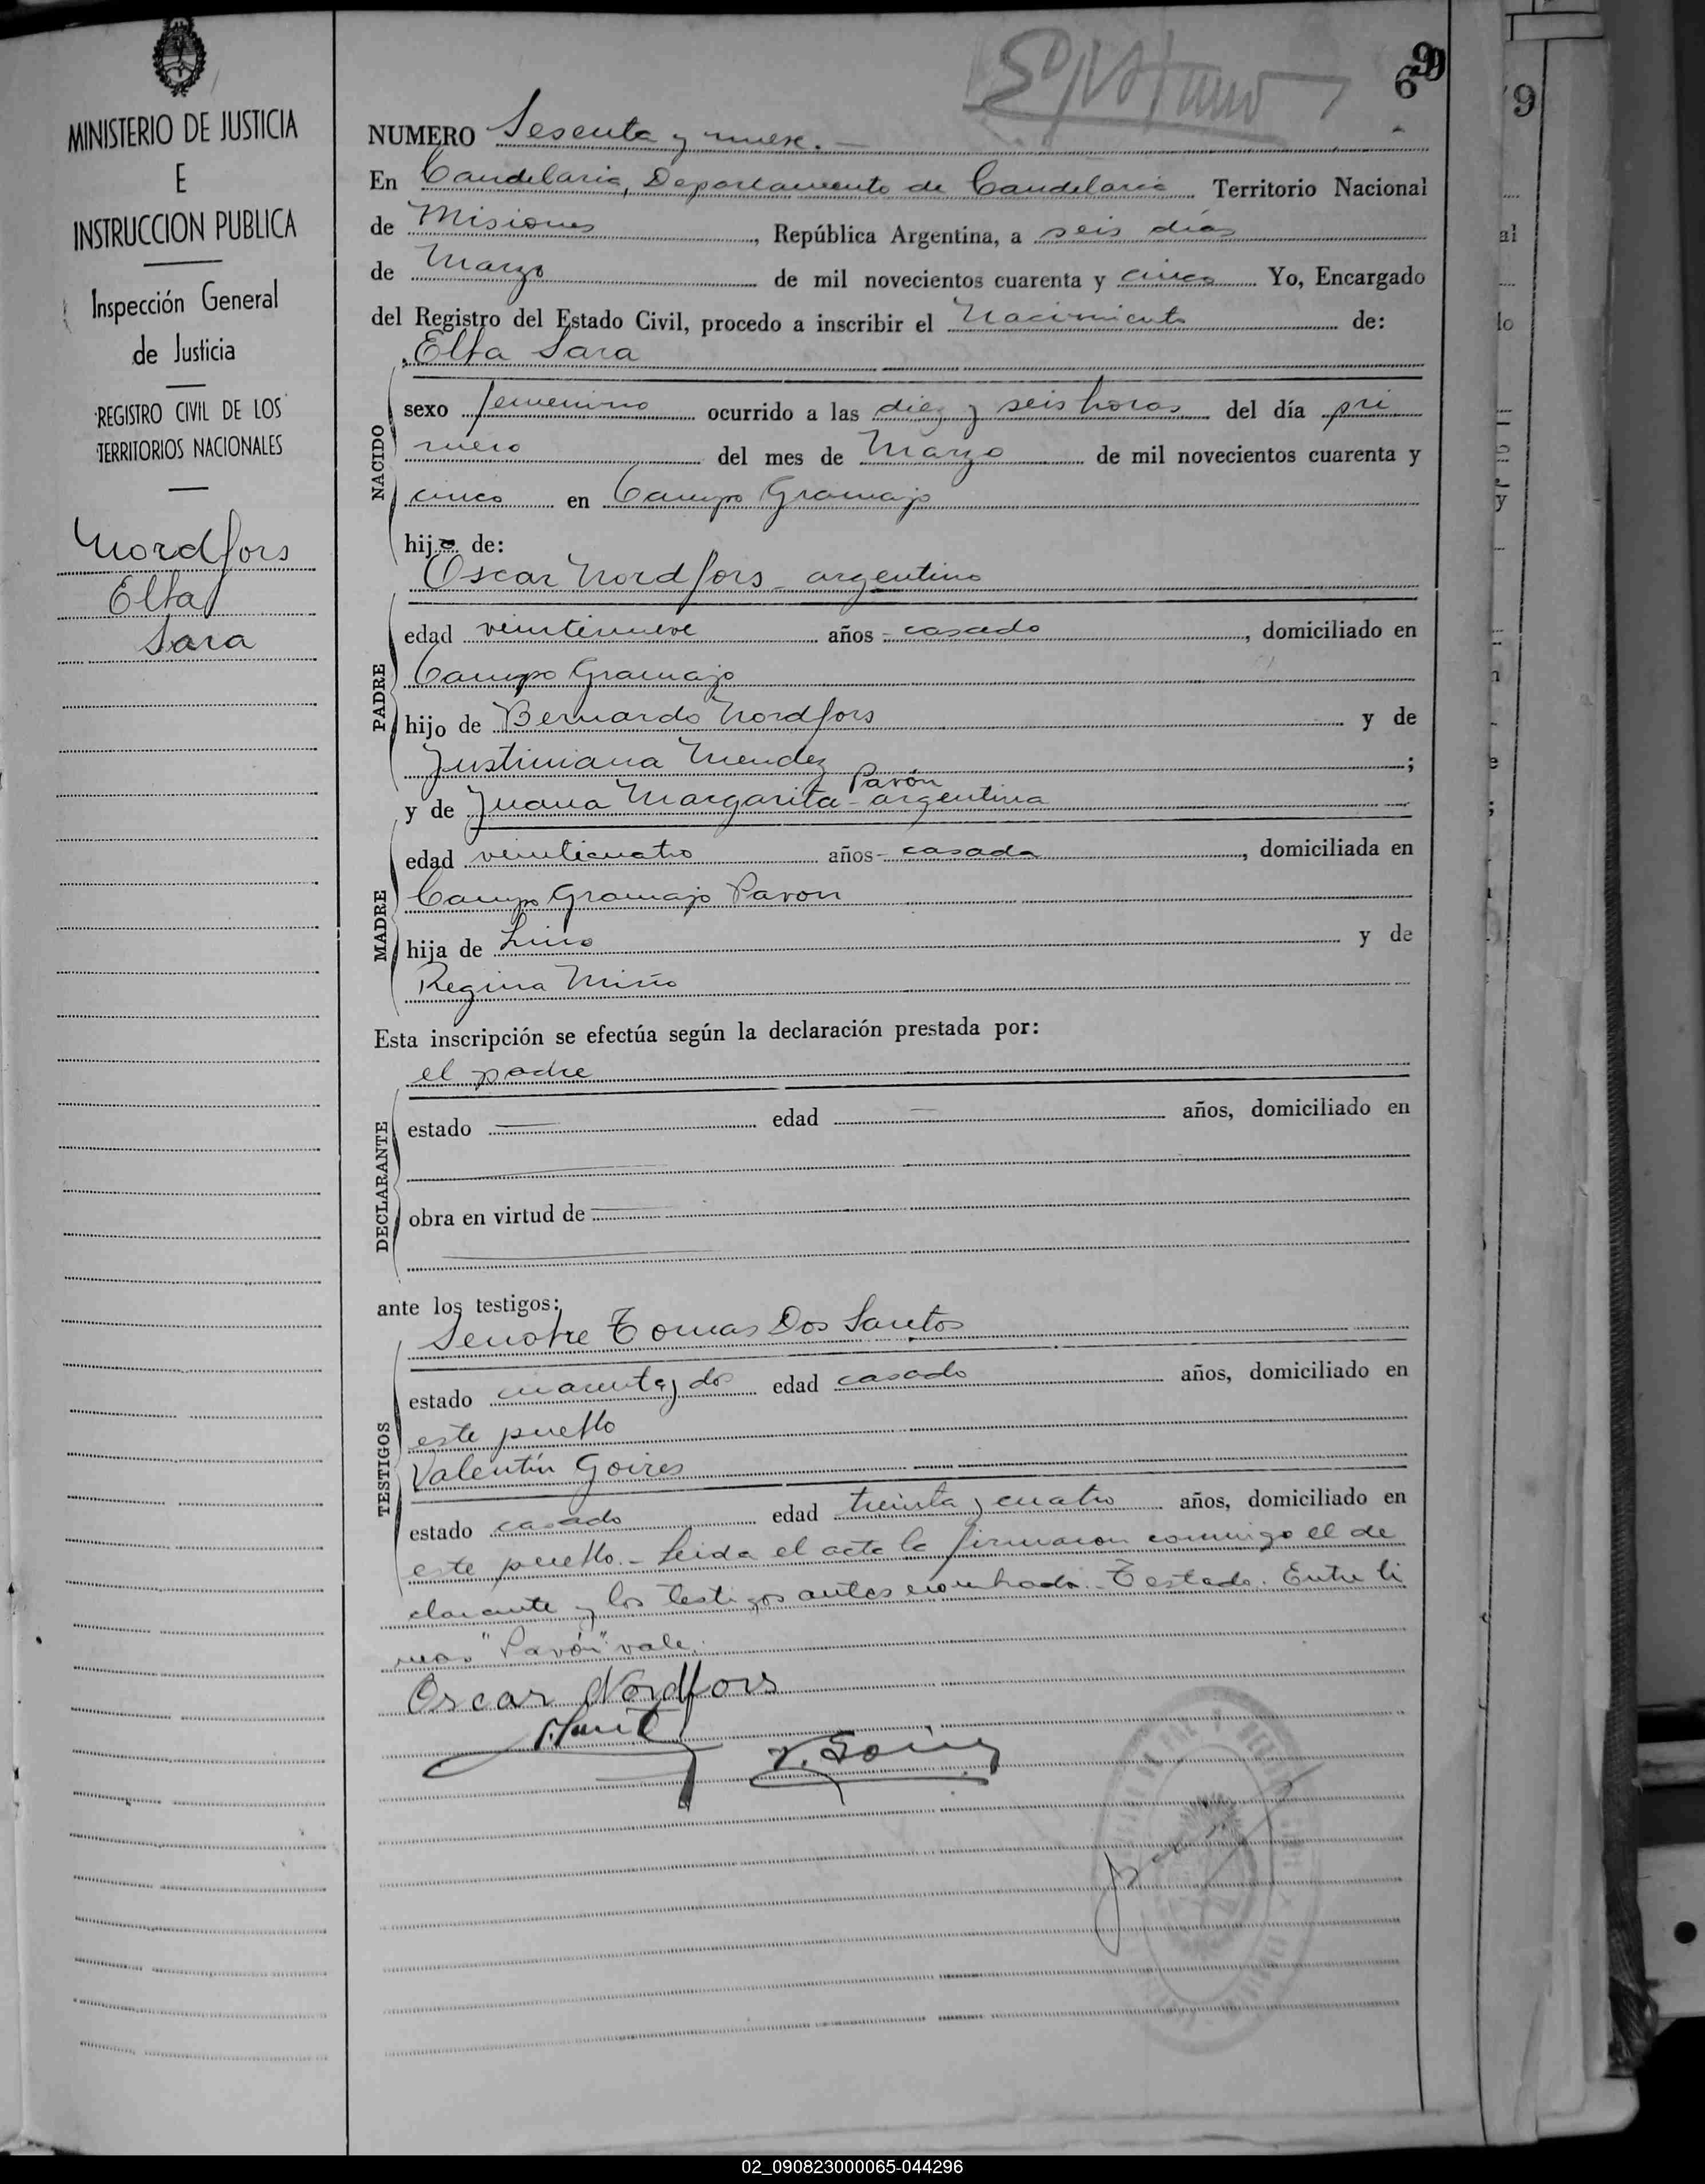 MINISTERIO DE JUSTICIA
E
INSTRUCCION PUBLICA
Inspección General
de Justicia
REGISTRO CIVIL DE LOS
TERRITORIOS NACIONALES
Nordfors
Elfa
Sara
69
NUMERO Sesenta y nueve.
En Candelaria, Departamento de Candelaria Territorio Nacional
de Misiones, República Argentina, a seis días
de Marzo de mil novecientos cuarenta y cinco Yo, Encargado
del Registro del Estado Civil, procedo a inscribir el Nacimiento de:
Elfa Sara
NACIDO
sexo femenino ocurrido a las diez y seis horas del día pri
mero del mes de Marzo de mil novecientos cuarenta y
cinco en Campo Gramajo
hija de:
Oscar Nordfors - argentino
PADRE
edad veintinueve años - casado, domiciliado en
Campo Gramajo
hijo de Bernardo Nordfors y de
Justiniana Mendez;
Pavón
y de Juana Margarita - argentina
MADRE
edad veinticuatro años - casada, domiciliada en
Campo Gramajo Pavon
hija de Lino y de
Regina Miño
Esta inscripción se efectúa según la declaración prestada por:
el padre
DECLARANTE
estado edad años, domiciliado en
obra en virtud de
ante los testigos:
Tomas Dos Santos
TESTIGOS
estado cuarenta y dos edad casado años, domiciliado en
este pueblo
Valentín Goires
estado casado edad treinta y cuatro años, domiciliado en
este pueblo. - Leida el acta la firmaron conmigo el de
clarante y los testigos antes nombrado. - Testado. Entre li
neas "Pavón" vale.
Oscar Nordfors
02_090823000065-044296